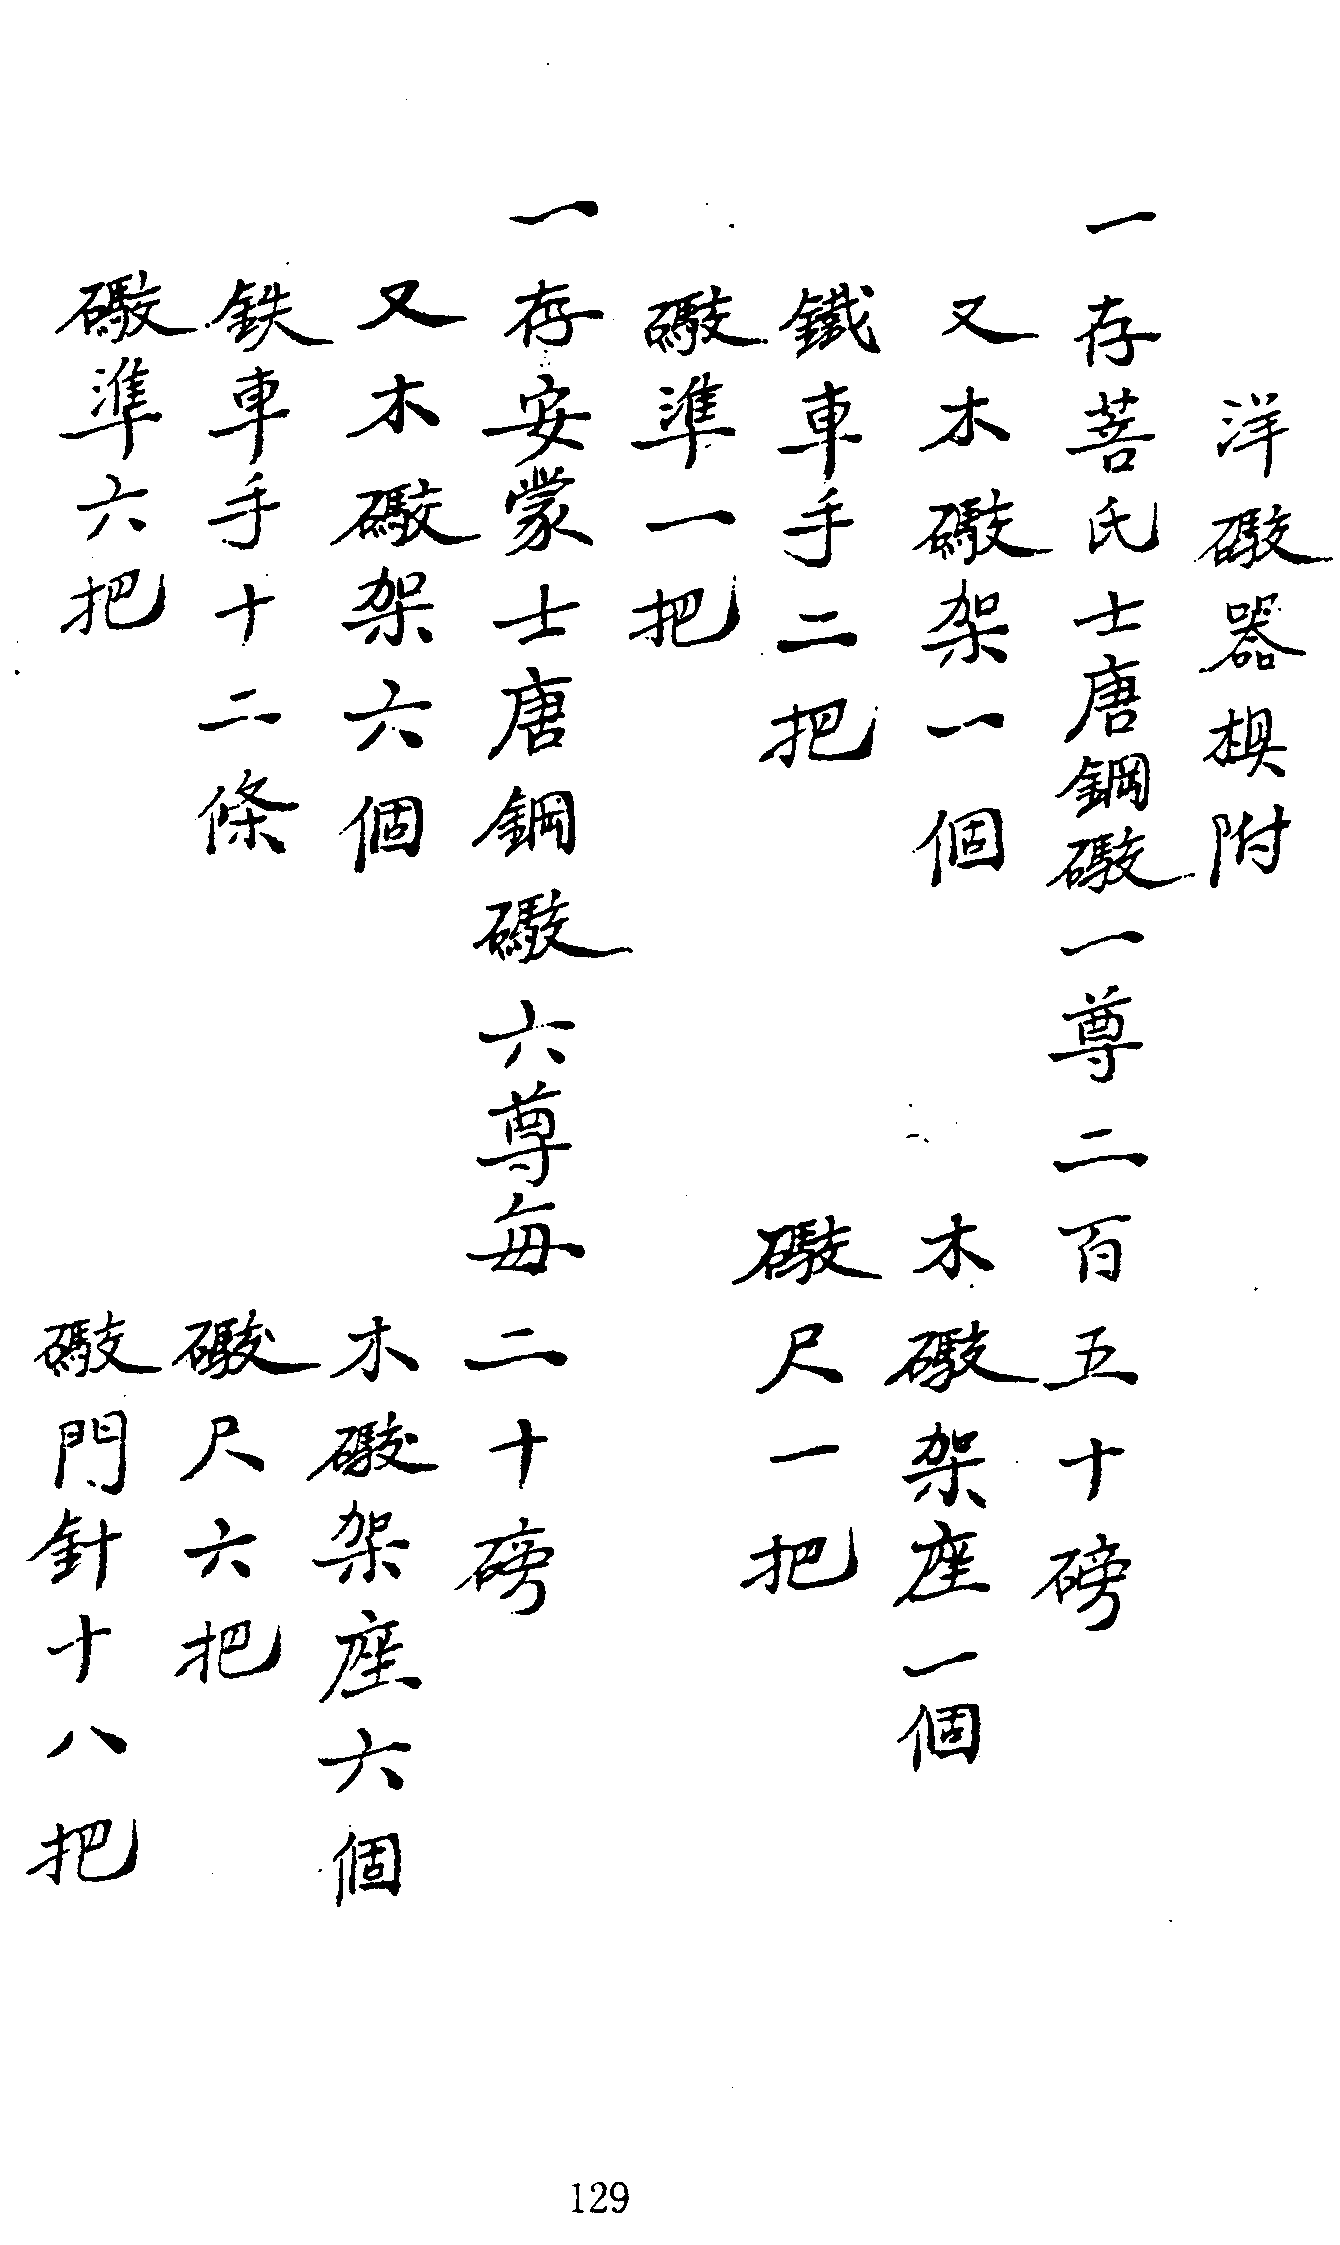 洋礮器具附
一存菩氏士唐鋼礮一尊二百五十磅
又木礮架一個　木礮架座一個
鐵車手二把　礮尺一把
礮準一把
一存安蒙士唐鋼礮六尊每二十磅
又木礮架六個　木礮架座六個
鉄車手十二條　礮尺六把
礮準六把　礮門針十八把
129